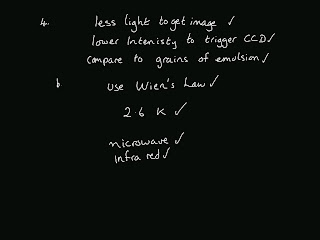 4. less light to get image ✓
lower Intenisty to trigger CCD ✓
compare to grains of emulsion ✓
b. use Wien's Law ✓
2.6 K ✓
microwave ✓
infra red ✓